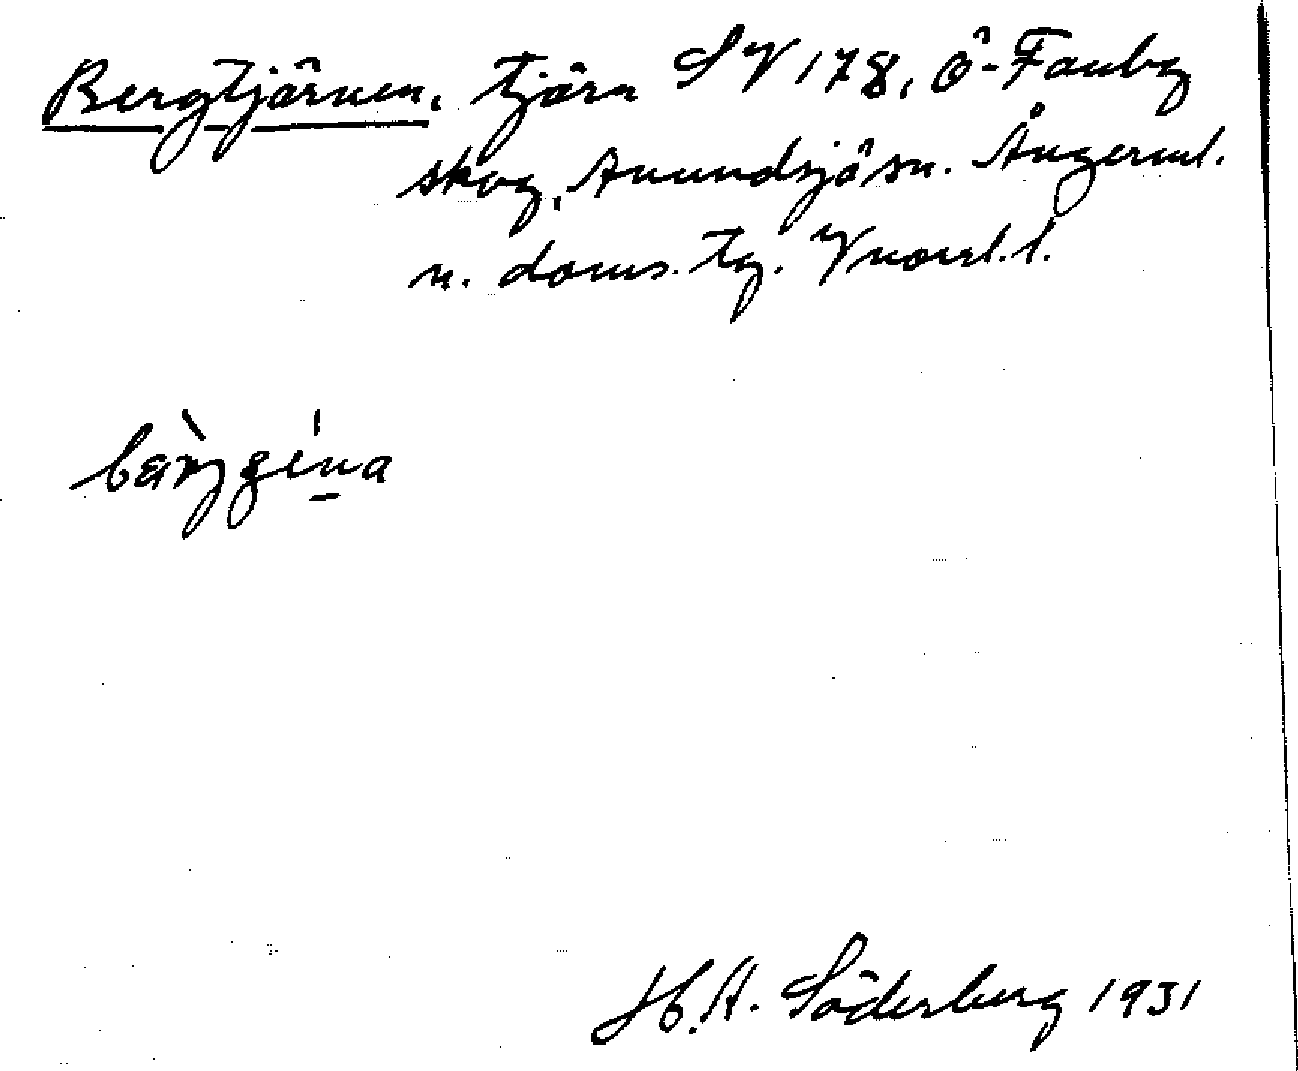 Bergtjärnen, tjärn SV 178, Ö-Fanbg
skog, Anundsjö sn. Ångerml.
n. doms. tg. Vnorrl. l.
H.A. Söderberg 1931